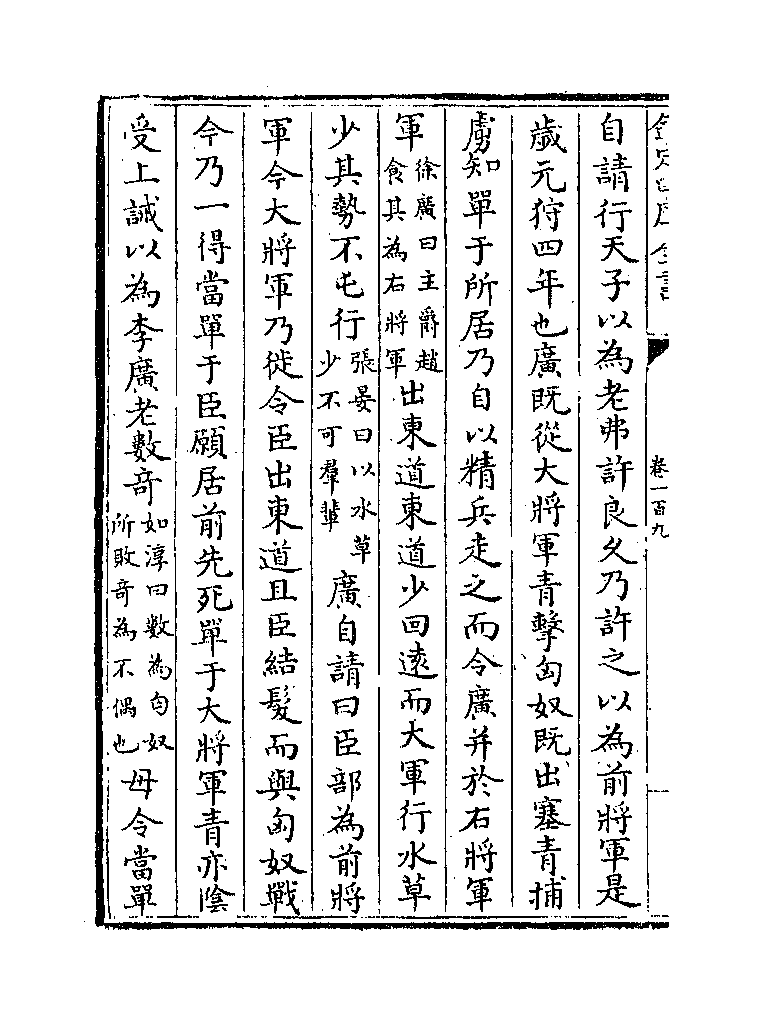 欽定四庫全書
卷一百九
自請行天子以為老弗許良久乃許之以為前將軍是
歲元狩四年也廣既從大將軍青擊匈奴既出塞青捕
虜知單于所居乃自以精兵走之而令廣并於右將軍
軍徐廣曰主爵趙食其為右將軍出東道東道少回遠而大軍行水草
少其勢不屯行張晏曰以水草少不可羣輩廣自請曰臣部為前將
軍今大將軍乃徙令臣出東道且臣結髮而與匈奴戰
今乃一得當單于臣願居前先死單于大將軍青亦陰
受上誡以為李廣老數奇如淳曰數為匈奴所敗奇為不偶也毋令當單